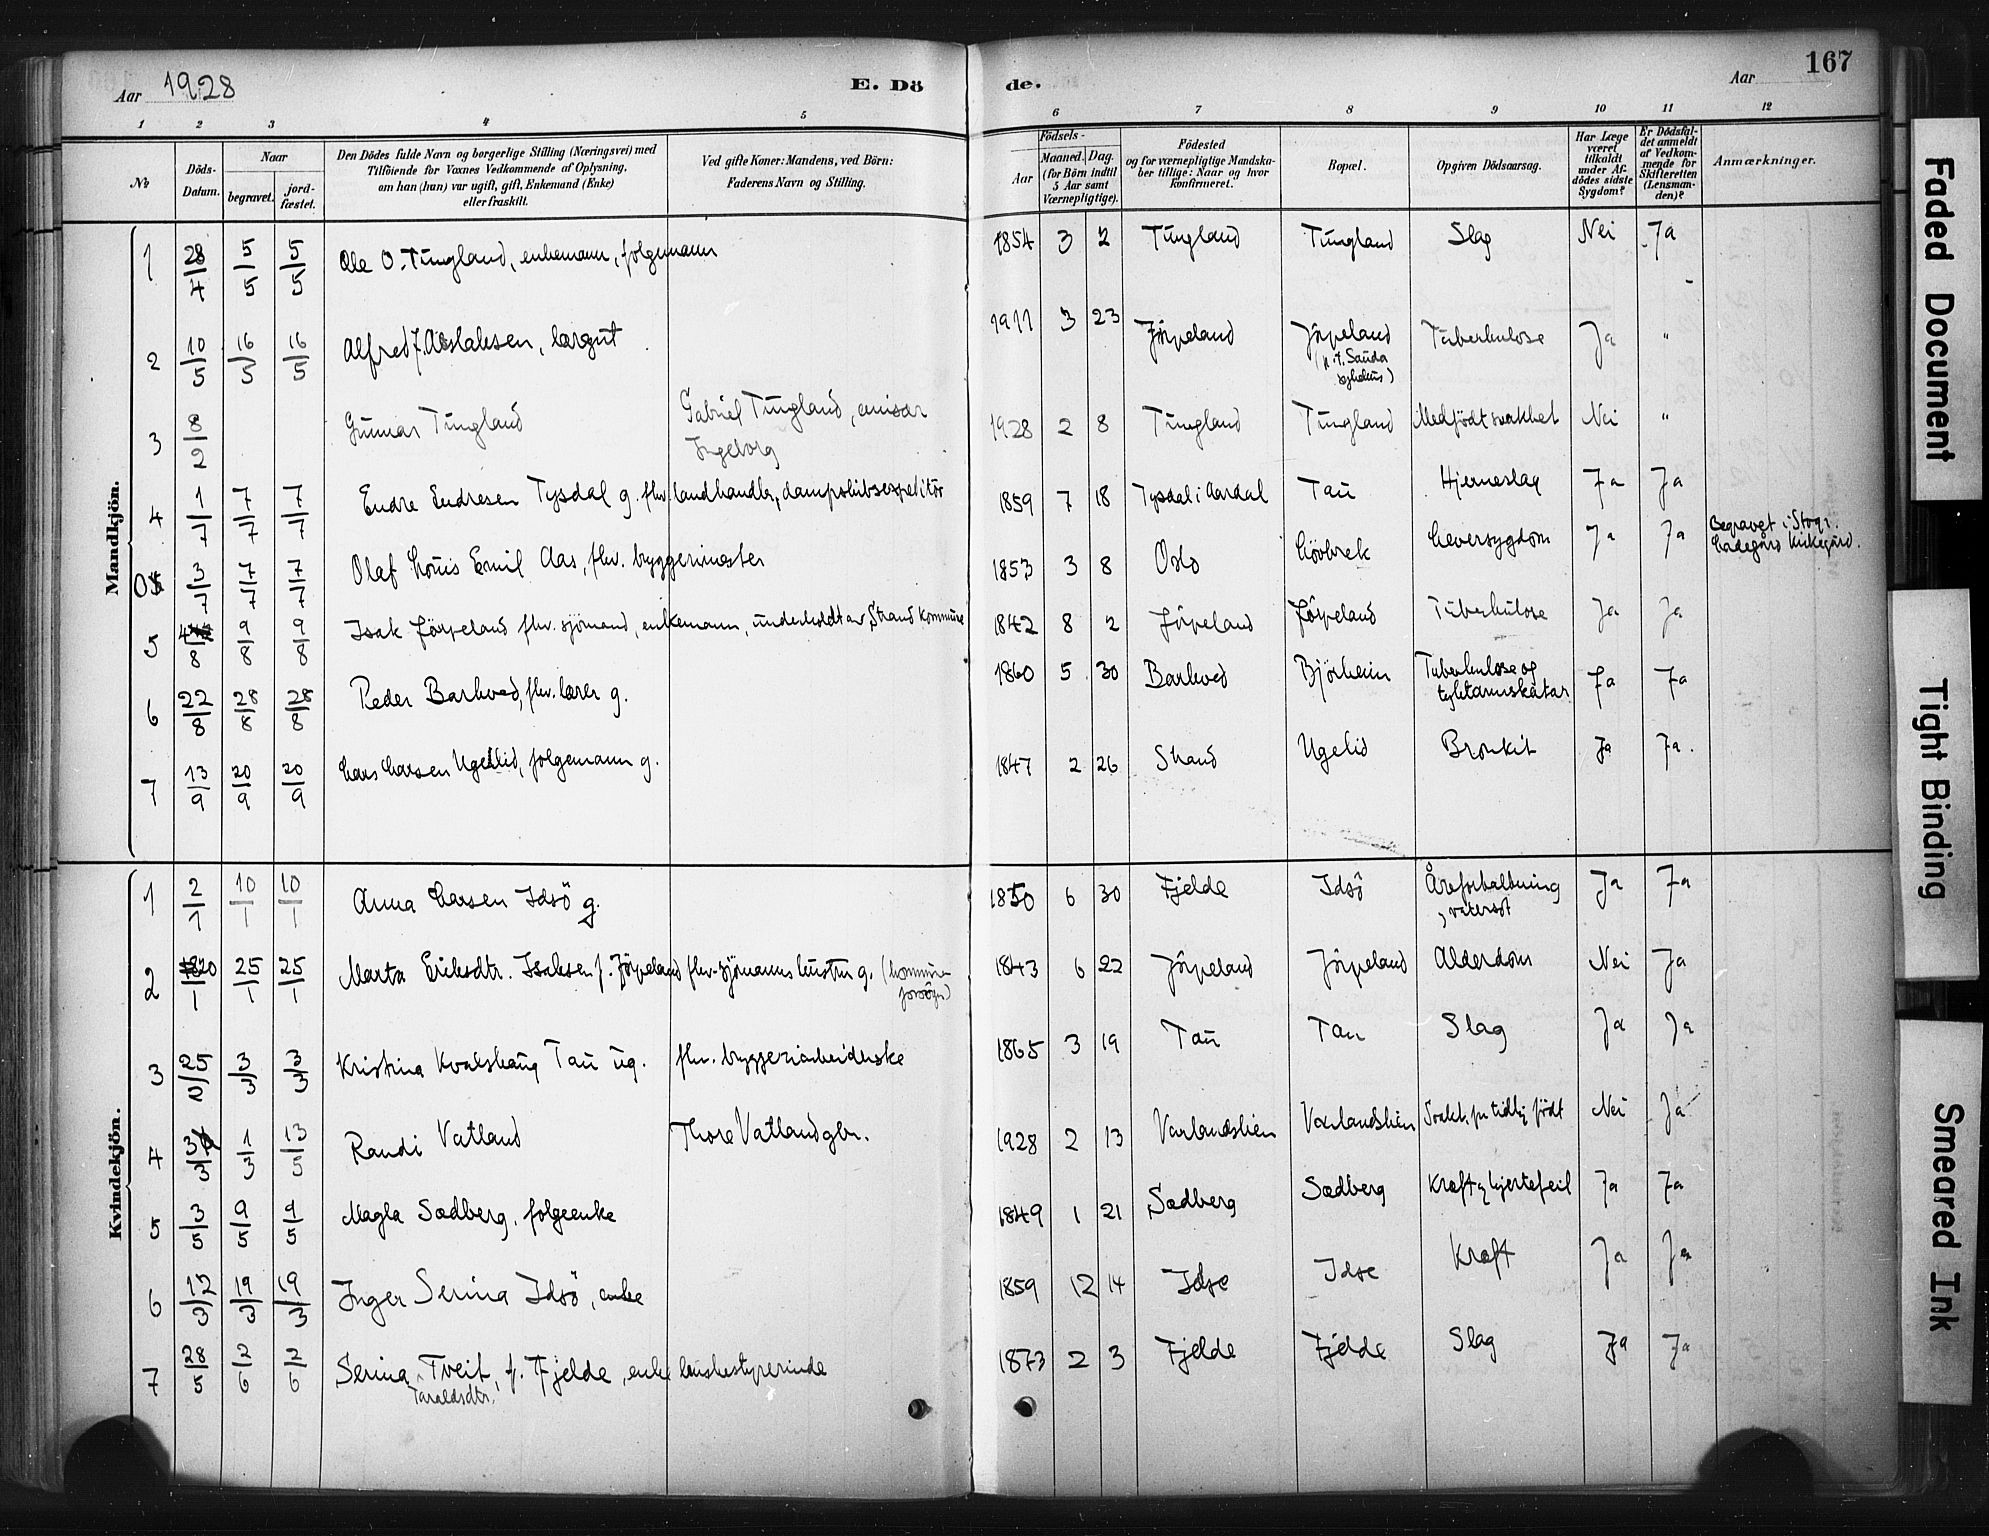 Aar 1928
E. Dö de.
Aar 167
1 2 3 4 5 6 7 8 9 10 11 12
№
Döds-Datum.
Naar begravet. jord-fæstet.
Den Dödes fulde Navn og borgerlige Stilling (Næringsvei) med
Tilföiende for Voxnes Vedkommende af Oplysning,
om han (hun) var ugift, gift, Enkemand (Enke)
eller fraskilt.
Ved gifte Koner: Mandens, ved Börn:
Faderens Navn og Stilling.
Födsels-
Aar Maaned. Dag.
(for Börn indtil
5 Aar samt
Værnepligtige).
Födested
og for værnepligtige Mandska-
ber tillige: Naar og hvor
konfirmeret.
Bopæl.
Opgiven Dödsaarsag.
Har Læge
været
tilkaldt
under Af-
dödes sidste
Sygdom?
Er Dödsfal-
det anmeldt
af Vedkom-
mende for
Skifteretten
(Lensman-
den)?
Anmærkninger.
Mandkjön.
1 28/4 5/5 5/5 Ole O. Tungland, enkemann, folgemann 1854 3 2 Tungland Tungland Slag Nei Ja
2 10/5 16/5 16/5 Alfred J. Aslaksen, læregut 1911 3 23 Jörpeland Jörpeland Tuberkulose Ja "
Sauda
3 8/2 Gunnar Tungland Gabriel Tungland, emisær 1928 2 8 Tungland Tungland Medfödt svakhet Nei "
Ingeborg
4 1/7 7/7 7/7 Endre Endresen Tysdal g. fhv. landhandler, dampskibsexpeditör 1859 7 18 Tysdal i Aardal Tau Hjerneslag Ja Ja
3/7 7/7 7/7 Olaf Louis Emil Aas, fhv. bryggerimester 1853 3 8 Oslo Leversygdom Ja Ja Begravet i
5 8 9/8 9/8 Isak Jörpeland fhv. sjömand, enkemann, underholdt av Strand kommune 1842 8 2 Jörpeland Jörpeland Tuberkulose Ja Ja
6 22/8 28/8 28/8 Peder Barkved, fhv. lærer g. 1860 5 30 Barkved Björheim Tuberkulose og Ja Ja
tyktarmskatar
7 13/9 20/9 20/9 Lars Larsen Ugelid, folgemann g. 1847 2 26 Strand Ugelid Bronkit Ja Ja.
Kvindekjön.
1 2/1 10/1 10/1 Anna Larsen Idsö g. 1850 6 30 Fjelde Idsö Åreforkalkning Ja Ja
2 20/1 25/1 25/1 Marta Eriksdtr. Isaksen f. Jörpeland fhv. sjömanns hustru g. (kommune 1843 6 22 Jörpeland Jörpeland Alderdom Nei Ja
3 25/2 3/3 3/3 Kristina Kvalshaug Tau ug. fhv. bryggeriarbeiderske 1865 3 19 Tau Tau Slag Ja Ja
4 1/3 13/5 Randi Vatland Thore Vatland gbr. 1928 2 13 Varlandslien Varlandslien Svakh. for tidlig födt Nei Ja
5 3/5 9/5 9/5 Magla Sædberg, folgeenke 1849 1 21 Sædberg Sædberg Kræft og hjertefeil Ja Ja
6 12/3 19/3 19/3 Inger Serina Idsö, enke 1859 12 14 Idse Idse Kræft Ja Ja
7 28/5 2/6 2/6 Serina Tveit, f. Fjelde, enke husbestyrerinde 1873 2 3 Fjelde Fjelde Slag Ja Ja
Taraldsdtr.
Faded Document
Tight Binding
Smeared Ink